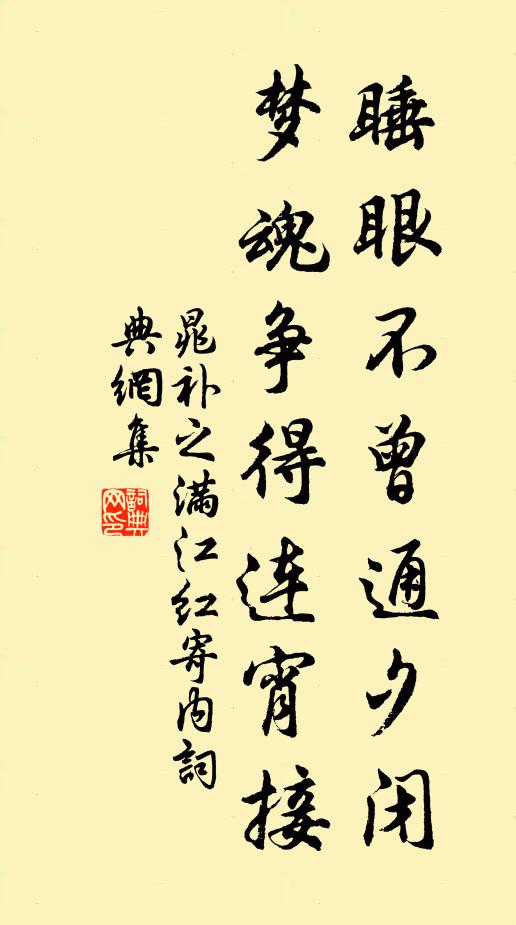 睡眼不曾通夕闭
梦魂争得连宵接
晁补之满江红寄内詞
典網集
詞典网印